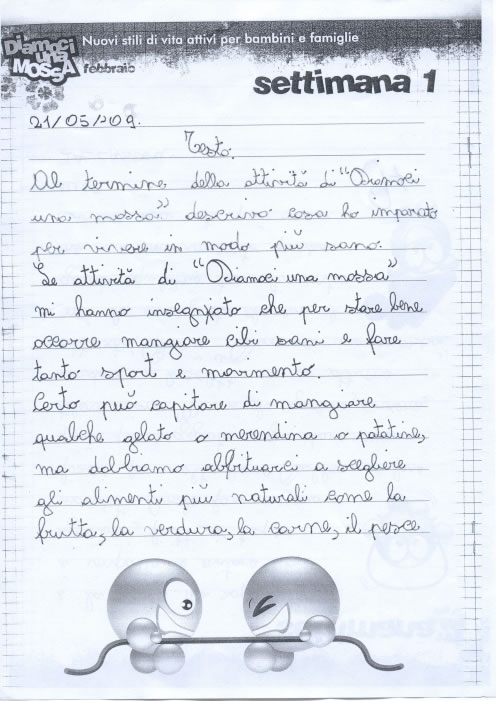 Diamoci
una
MOSSA
Nuovi stili di vita attivi per bambini e famiglie
febbraio
settimana 1
21/05/209.
Testo.
Al termine della attività di "Diamoci
una mossa" descrivo cosa ho imparato
per vivere in modo più sano.
Le attività di "Diamoci una mossa"
mi hanno insegnato che per stare bene
occorre mangiare cibi sani e fare
tanto sport e movimento.
Certo può capitare di mangiare
qualche gelato o merendina o patatine,
ma dobbiamo abituarci a scegliere
gli alimenti più naturali come la
frutta, la verdura, la carne, il pesce